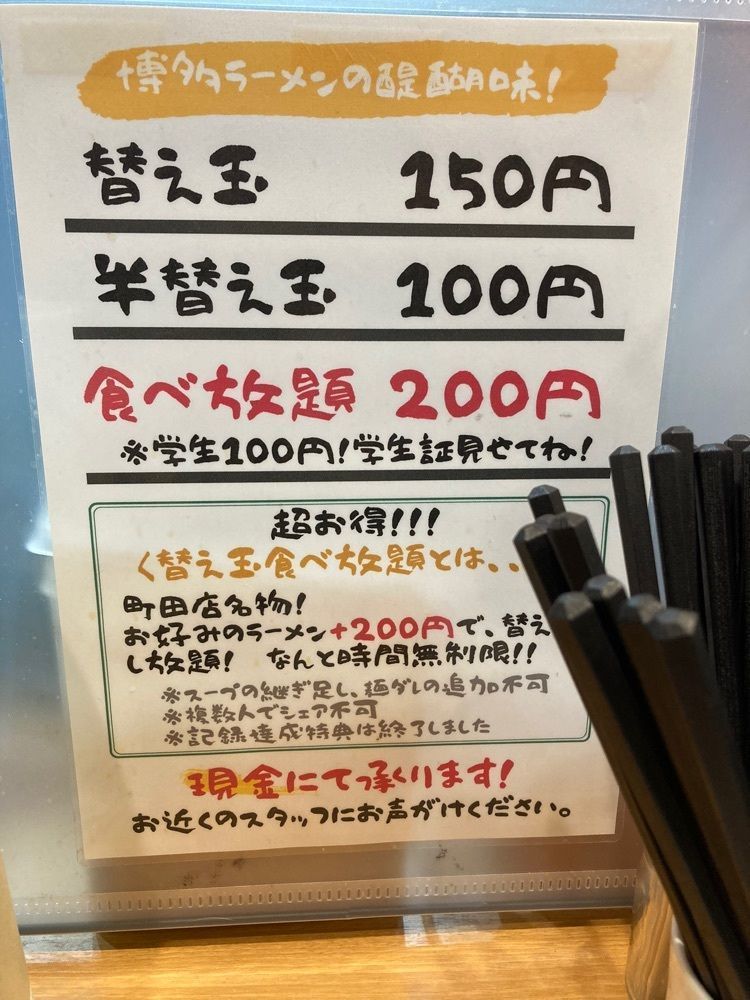 博多ラーメンの醍醐味!
替え玉 150円
半替え玉 100円
食べ放題 200円
※学生100円!学生証見せてね!
超お得!!!
く替え玉食べ放題とは、、
町田店名物!
お好みのラーメン+200円で、替え
し放題! なんと時間無制限!!
※スープの継ぎ足し、麺ダレの追加不可
※複数人でシェア不可
※記録達成特典は終了しました
現金にて承ります!
お近くのスタッフにお声がけください。